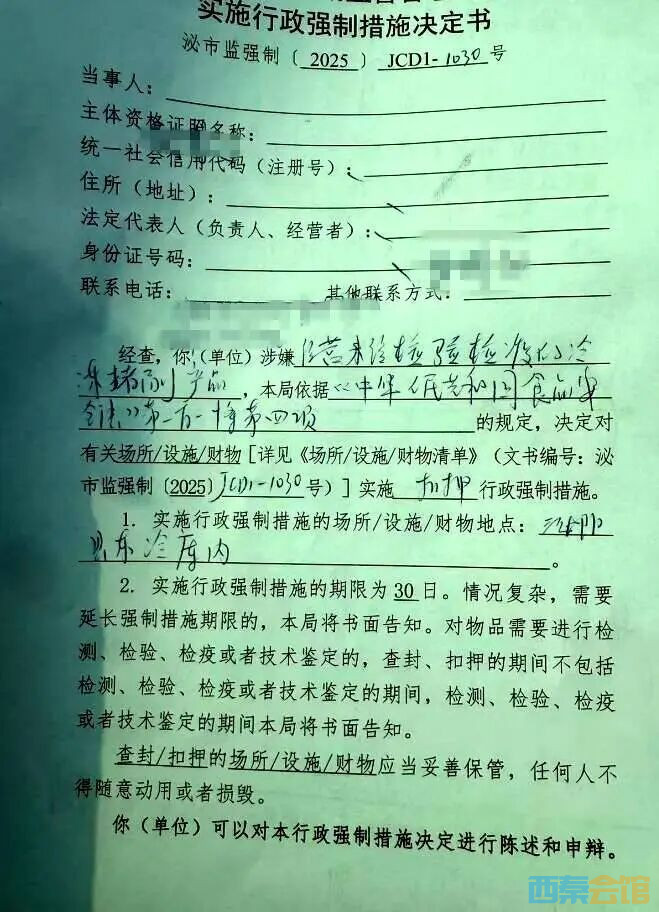 实施行政强制措施决定书
泌市监强制〔 2025 〕 JCD1-1030 号
当事人：
主体资格证照名称：
统一社会信用代码（注册号）：
住所（地址）：
法定代表人（负责人、经营者）：
身份证号码：
联系电话： 其他联系方式：
经查，你（单位）涉嫌 经营未经检验检疫的冷
冻猪副产品 ，本局依据《中华人民共和国食品安
全法》第一百一十条第四项 的规定，决定对
有关场所/设施/财物［详见《场所/设施/财物清单》（文书编号：泌
市监强制〔2025〕JCD1-1030号）］实施 扣押 行政强制措施。
1. 实施行政强制措施的场所/设施/财物地点：
冷库内 。
2. 实施行政强制措施的期限为 30 日。情况复杂，需要
延长强制措施期限的，本局将书面告知。对物品需要进行检
测、检验、检疫或者技术鉴定的，查封、扣押的期间不包括
检测、检验、检疫或者技术鉴定的期间，检测、检验、检疫
或者技术鉴定的期间本局将书面告知。
查封/扣押的场所/设施/财物应当妥善保管，任何人不
得随意动用或者损毁。
你（单位）可以对本行政强制措施决定进行陈述和申辩。
西秦会馆